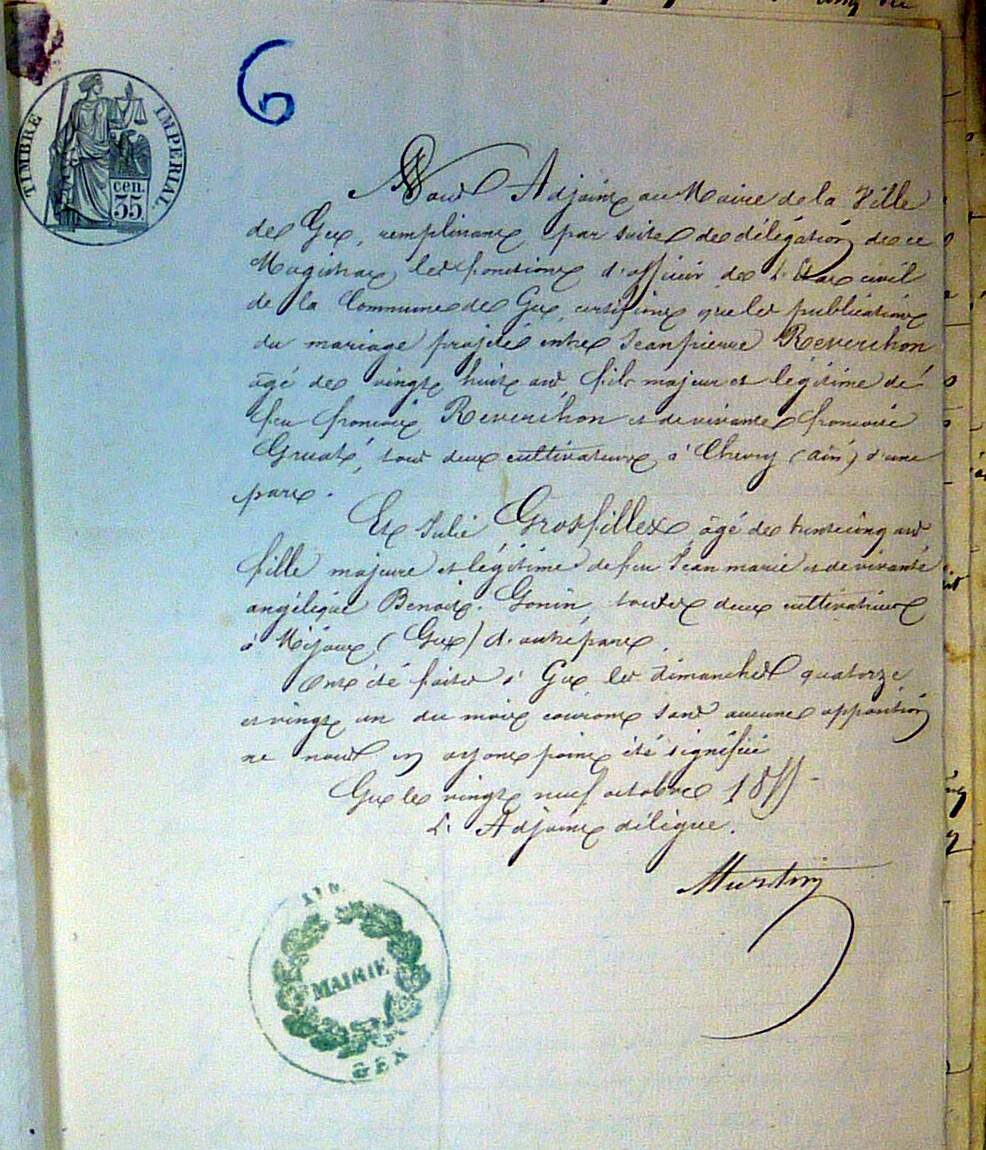 TIMBRE IMPERIAL.
cen.
35.
6
Nous Adjoint au Maire de la Ville
de Gex, remplissant par suite de délégation de ce
Magistrat, les fonctions d'officier de l'Etat civil
de la Commune de Gex, certifions que les publications
du mariage projeté entre Jean pierre Reverchon
âgé de vingt huit ans, fils majeur et légitime de
feu françois Reverchon et de vivante françoise
Gruat, tous deux cultivateurs à Chevry (ain) d'une
part.
Et Julie Grosfillex, âgé de trente cinq ans
fille majeure et légitime de feu Jean marie et de vivante
angélique Benoite Gonin, toutes deux cultivateurs
à Mijoux (Gex) d'autre part,
Ont été faites à Gex les dimanches quatorze
et vingt un du mois courant sans aucune opposition
ne nous en ayant point été signifié
Gex le vingt neuf octobre 18
L'Adjoint délégué.
AIN
MAIRIE
GEX